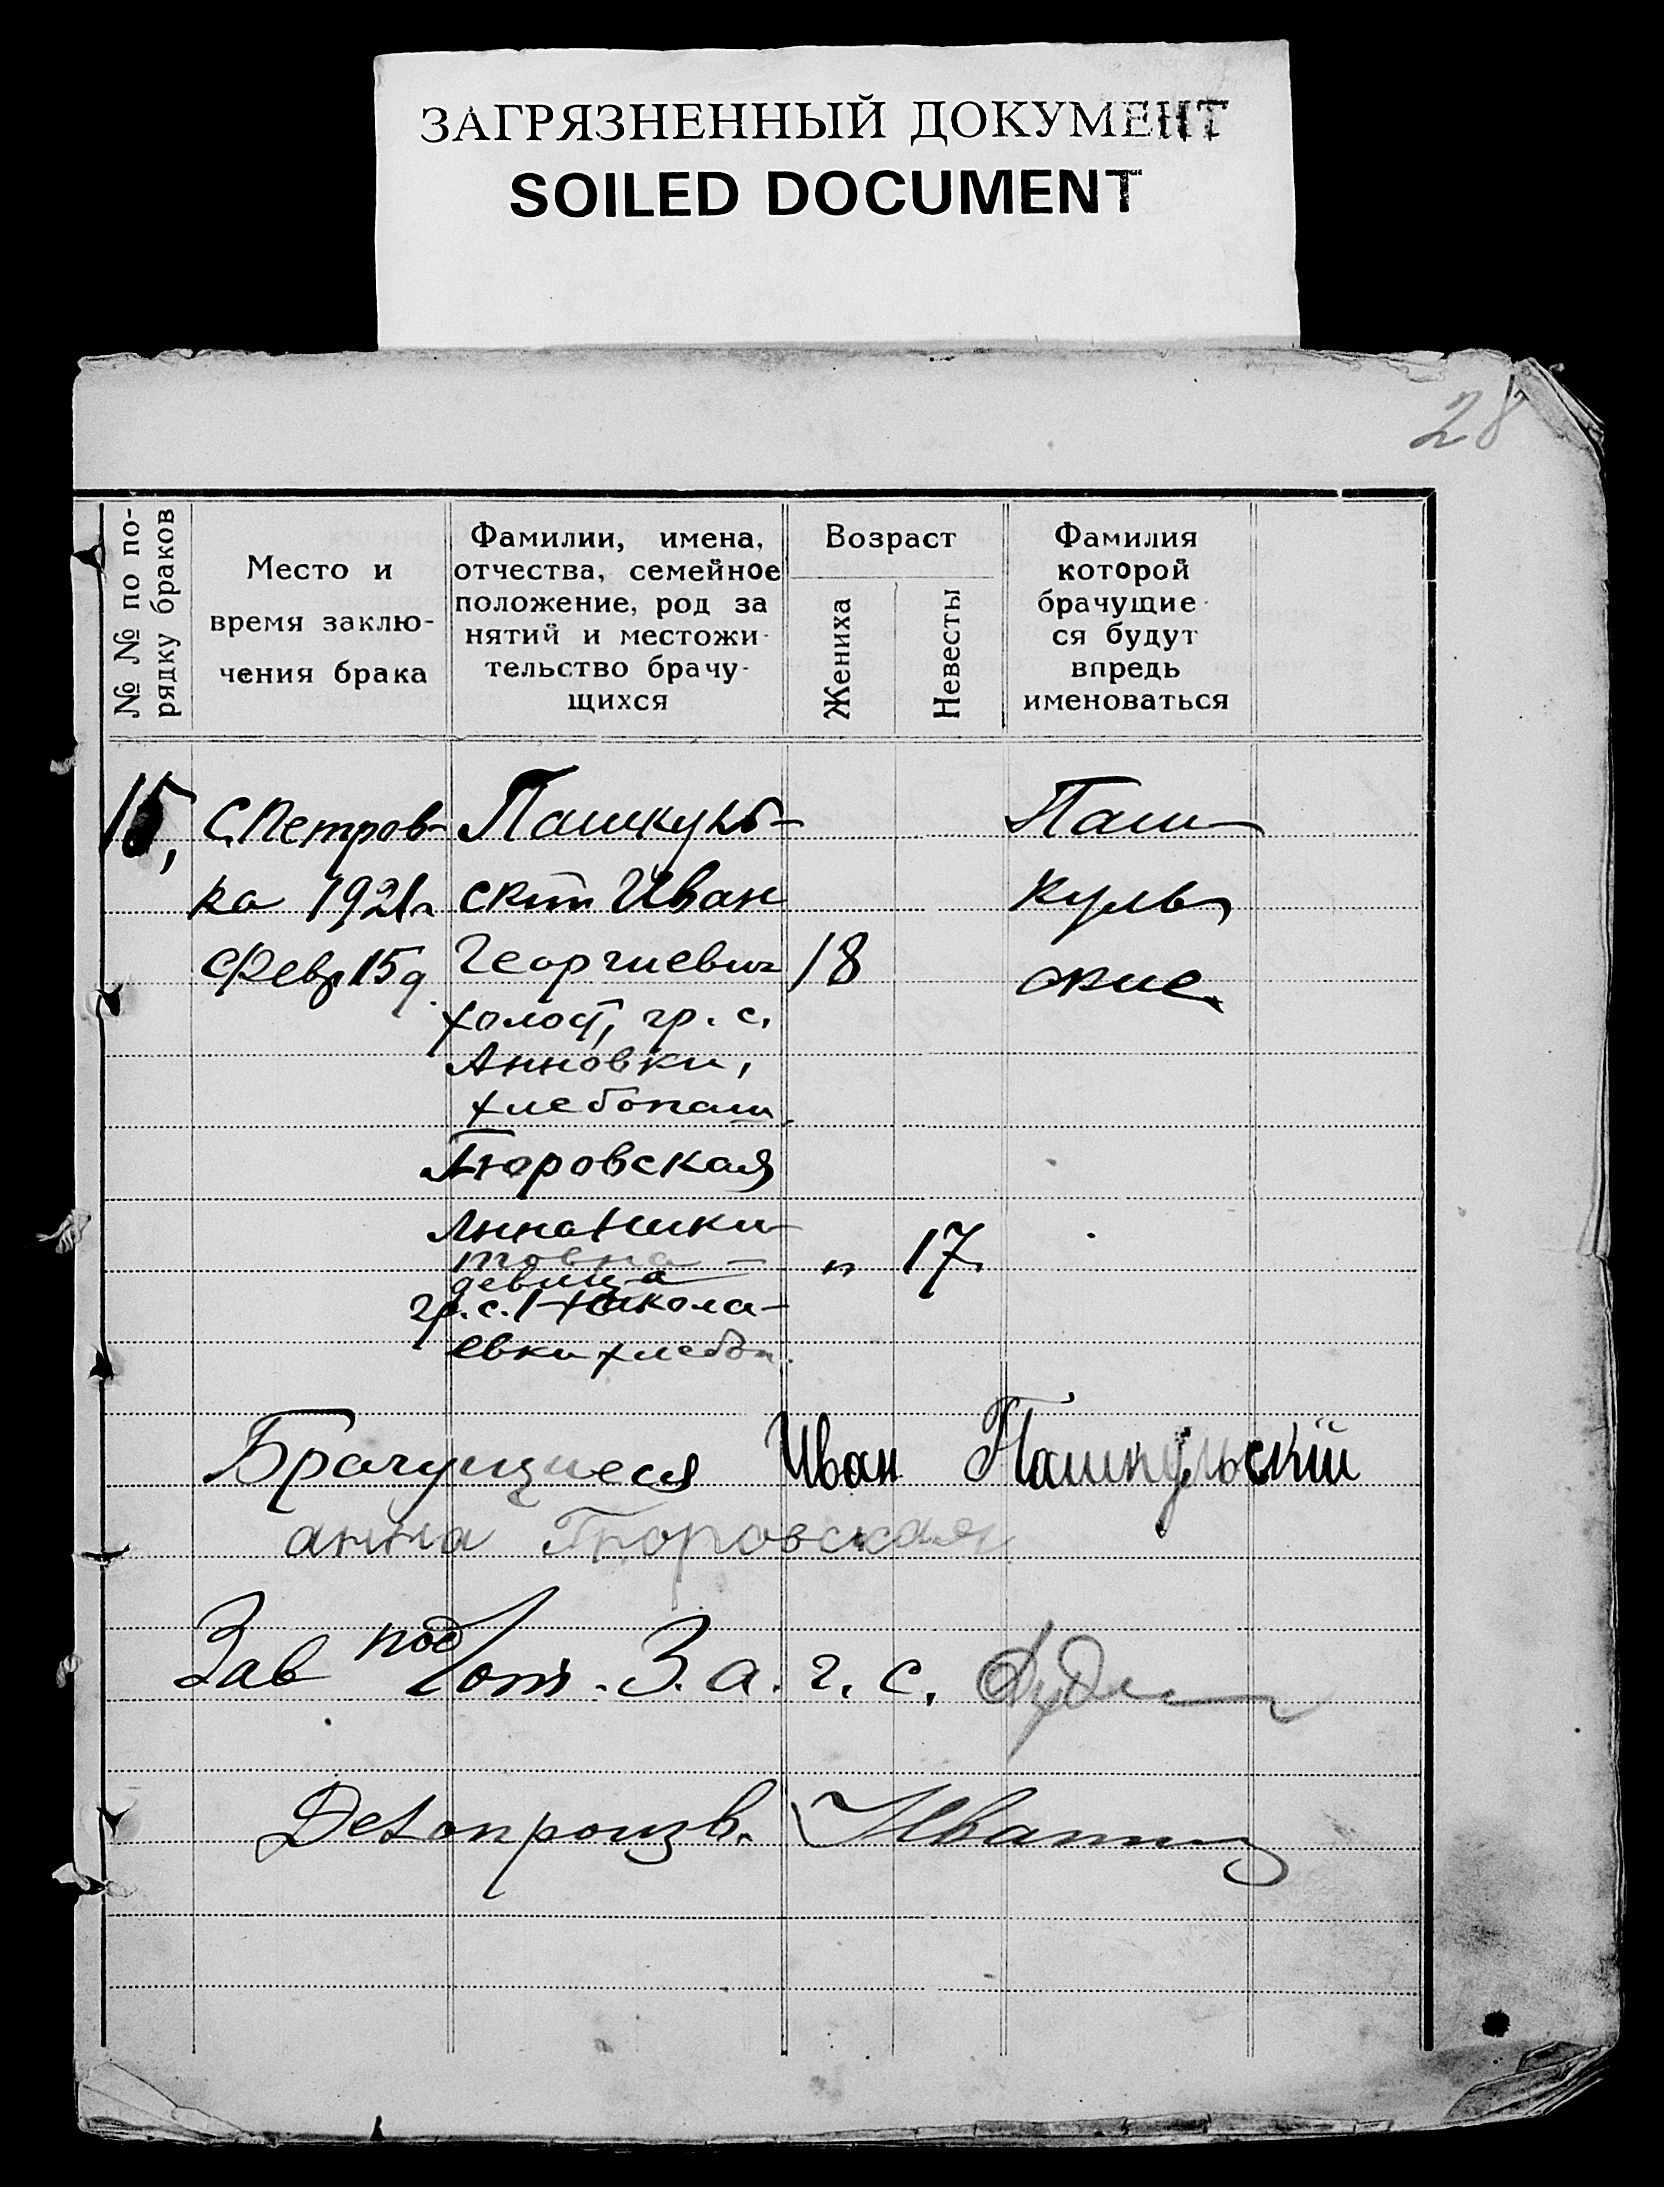 ЗАГРЯЗНЕННЫЙ ДОКУМЕНТ
SOILED DOCUMENT
28
№ № по по-
рядку браков
Место и
время заклю-
чения брака
Фамилии, имена,
отчества, семейное
положение, род за
нятий и местожи-
тельство брачу-
щихся
Возраст
Жениха
Невесты
Фамилия
которой
брачущие-
ся будут
впредь
именоваться
15,
С. Петров-
ка 1921 г
Февр 15 д.
Пашкуль-
ский Иван
Георгиевич
холост, гр. с.
Анновки,
хлебопаш.
18
Паш-
куль
ские
Тюровская
Анна Ники-
товна -
девица
гр. с. Никола-
евки хлебоп.
" 17.
Брачущиеся Иван Пашкульскій
анна Тюровская
Зав под/от. З. а. г. с.
Делопроизв.